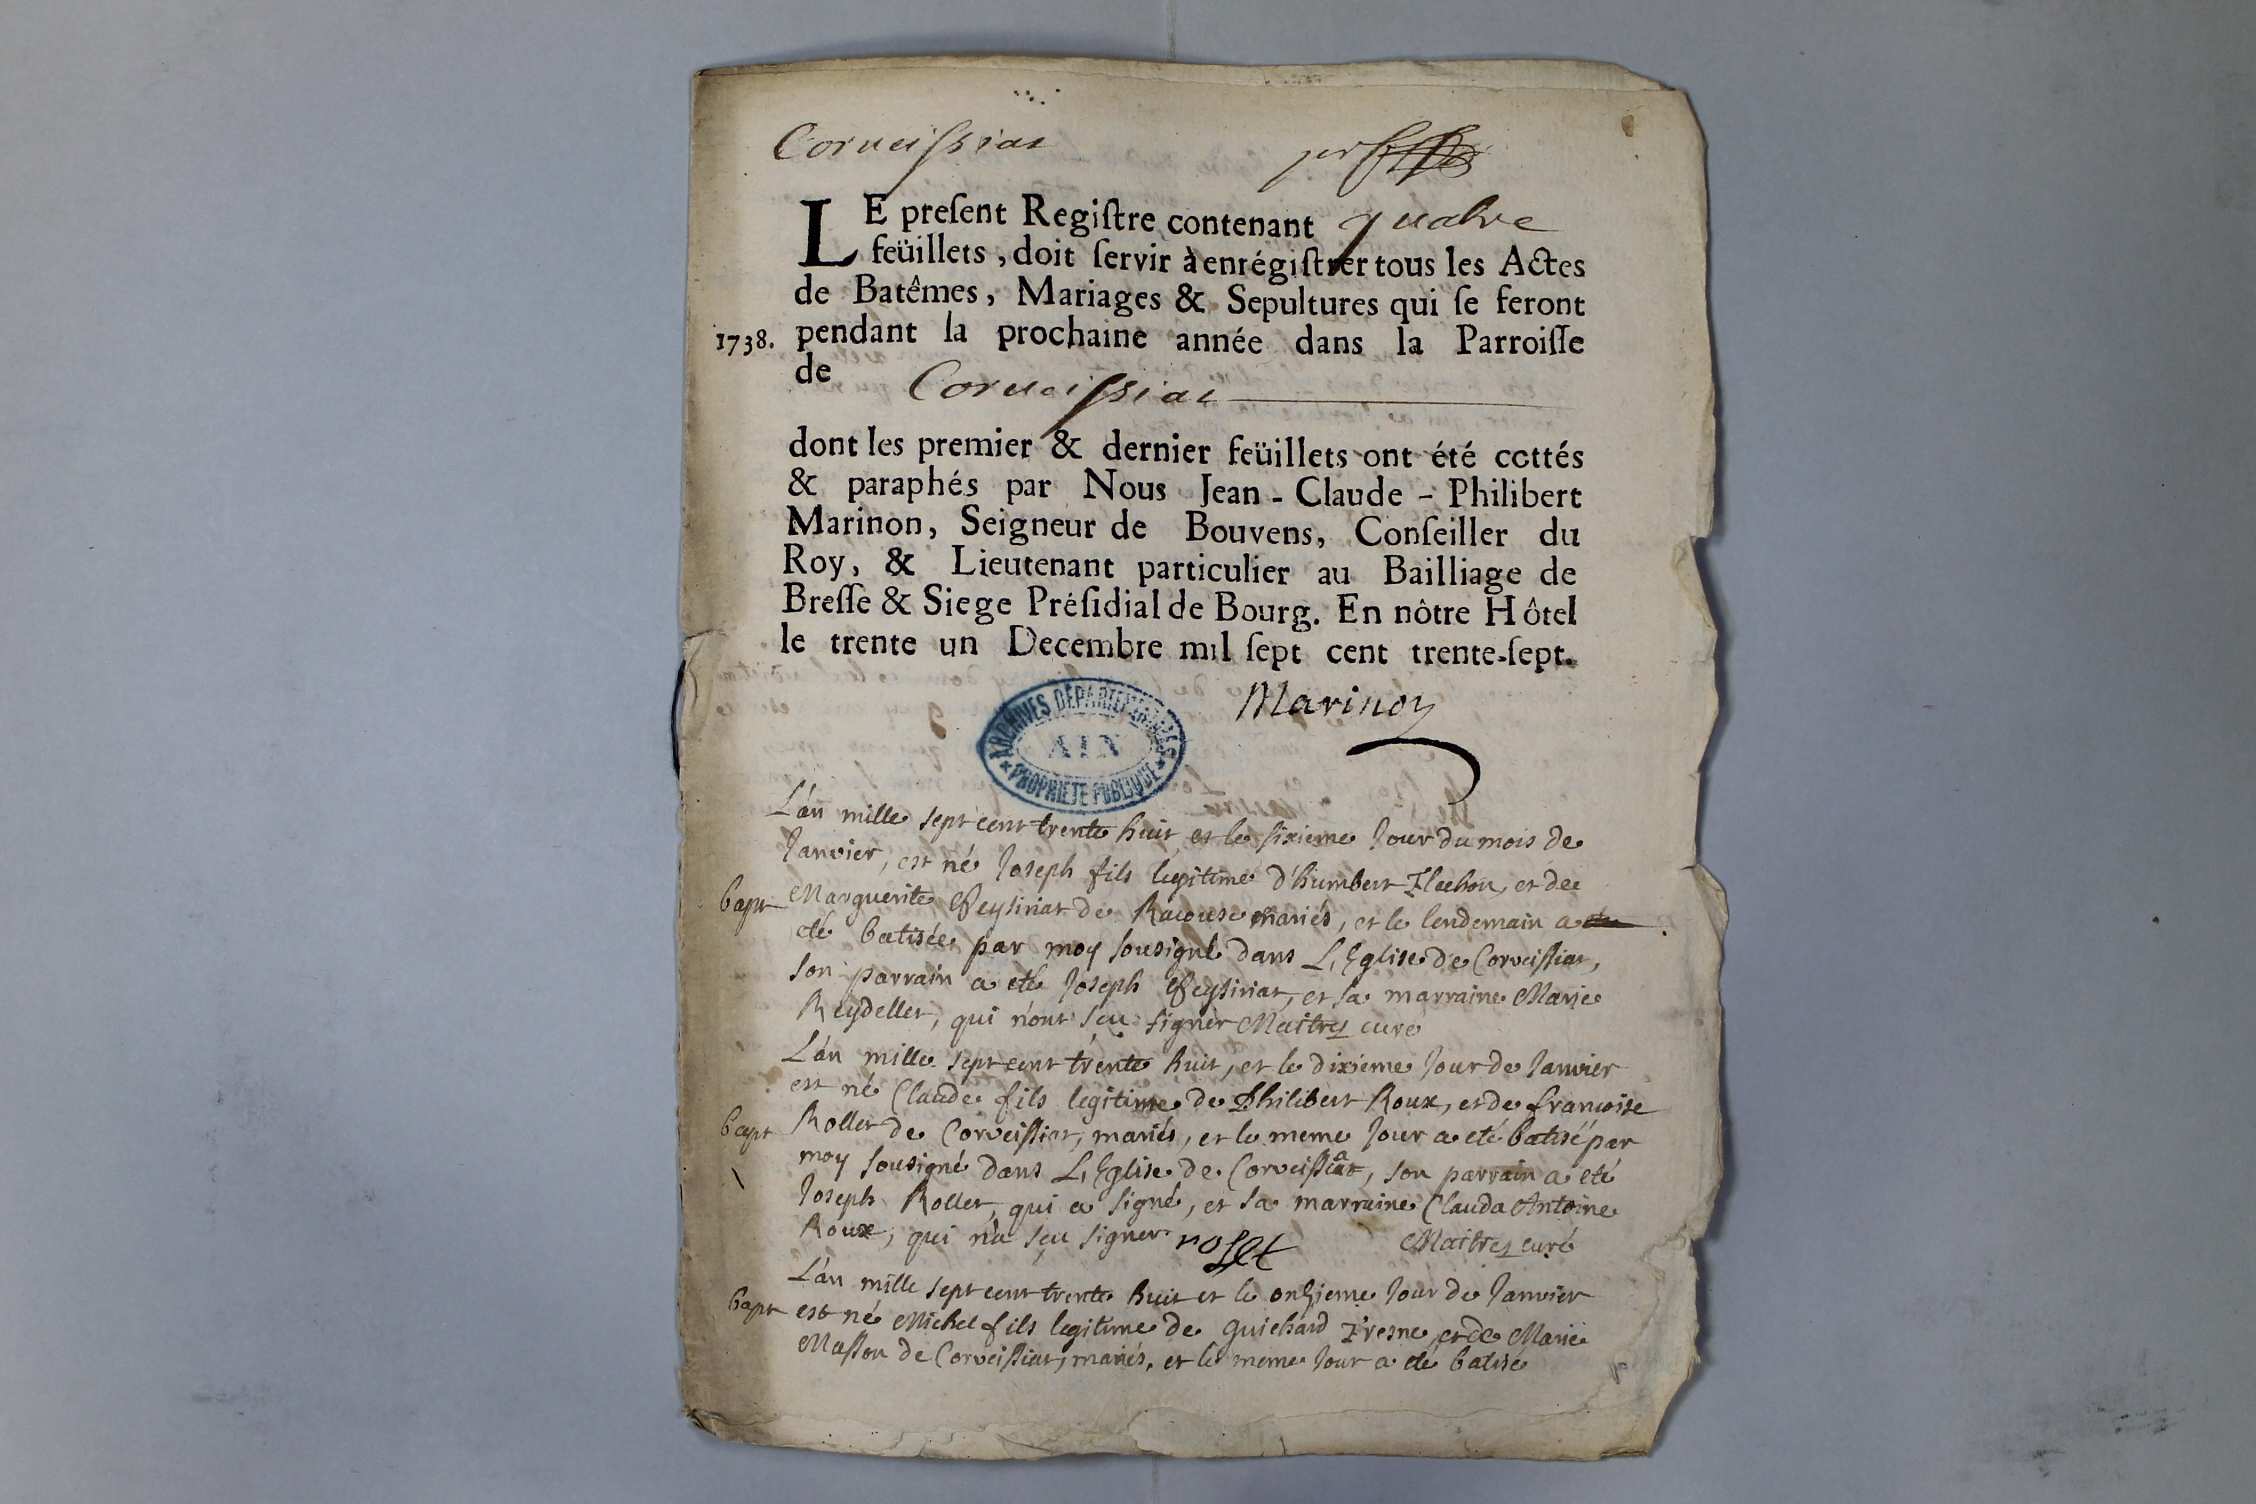 Corveissiat
per
LE present Registre contenant quatre
feüillets, doit servir à enrégistrer tous les Actes
de Batêmes, Mariages & Sepultures qui se feront
1738. pendant la prochaine année dans la Parroisse
de Corveissiat
dont les premier & dernier feüillets ont été cottés
& paraphés par Nous Jean-Claude-Philibert
Marinon, Seigneur de Bouvens, Conseiller du
Roy, & Lieutenant particulier au Bailliage de
Bresse & Siege Présidial de Bourg. En nôtre Hôtel
le trente un Decembre mil sept cent trente-sept.
Marinon
ARCHIVES DÉPARTEMENTALES
AIN
* PROPRIÉTÉ PUBLIQUE *
L'an mille sept cent trente huit et le sixieme Jour du mois de
Janvier, est né Joseph fils legitime d'humbert Flechon, et de
bapt Marguerite Peysiriat de Racouse mariés, et le lendemain a
eté batisée par moy sousigné dans L'Eglise de Corveissiat,
son parrain a eté Joseph Peysiriat, et sa marraine Marie
Reydellet, qui n'ont sçu signer Maitrez curé
L'an mille sept cent trente huit, et le dixieme Jour de Janvier
est né Claude fils legitime de Philibert Roux, et de francoise
bapt Rollet de Corveissiat, mariés, et le meme Jour a eté batisé par
moy sousigné dans L'Eglise de Corveissiat, son parrain a eté
Joseph Rollet, qui a signé, et sa marraine Clauda Antoine
Roux, qui n'a sçu signer roset Maitrez curé
L'an mille sept cent trente huit et le onzieme Jour de Janvier
bapt est né Michel fils legitime de guichard Fresne, et de Marie
Masson de Corveissiat, mariés, et le meme Jour a eté batisé